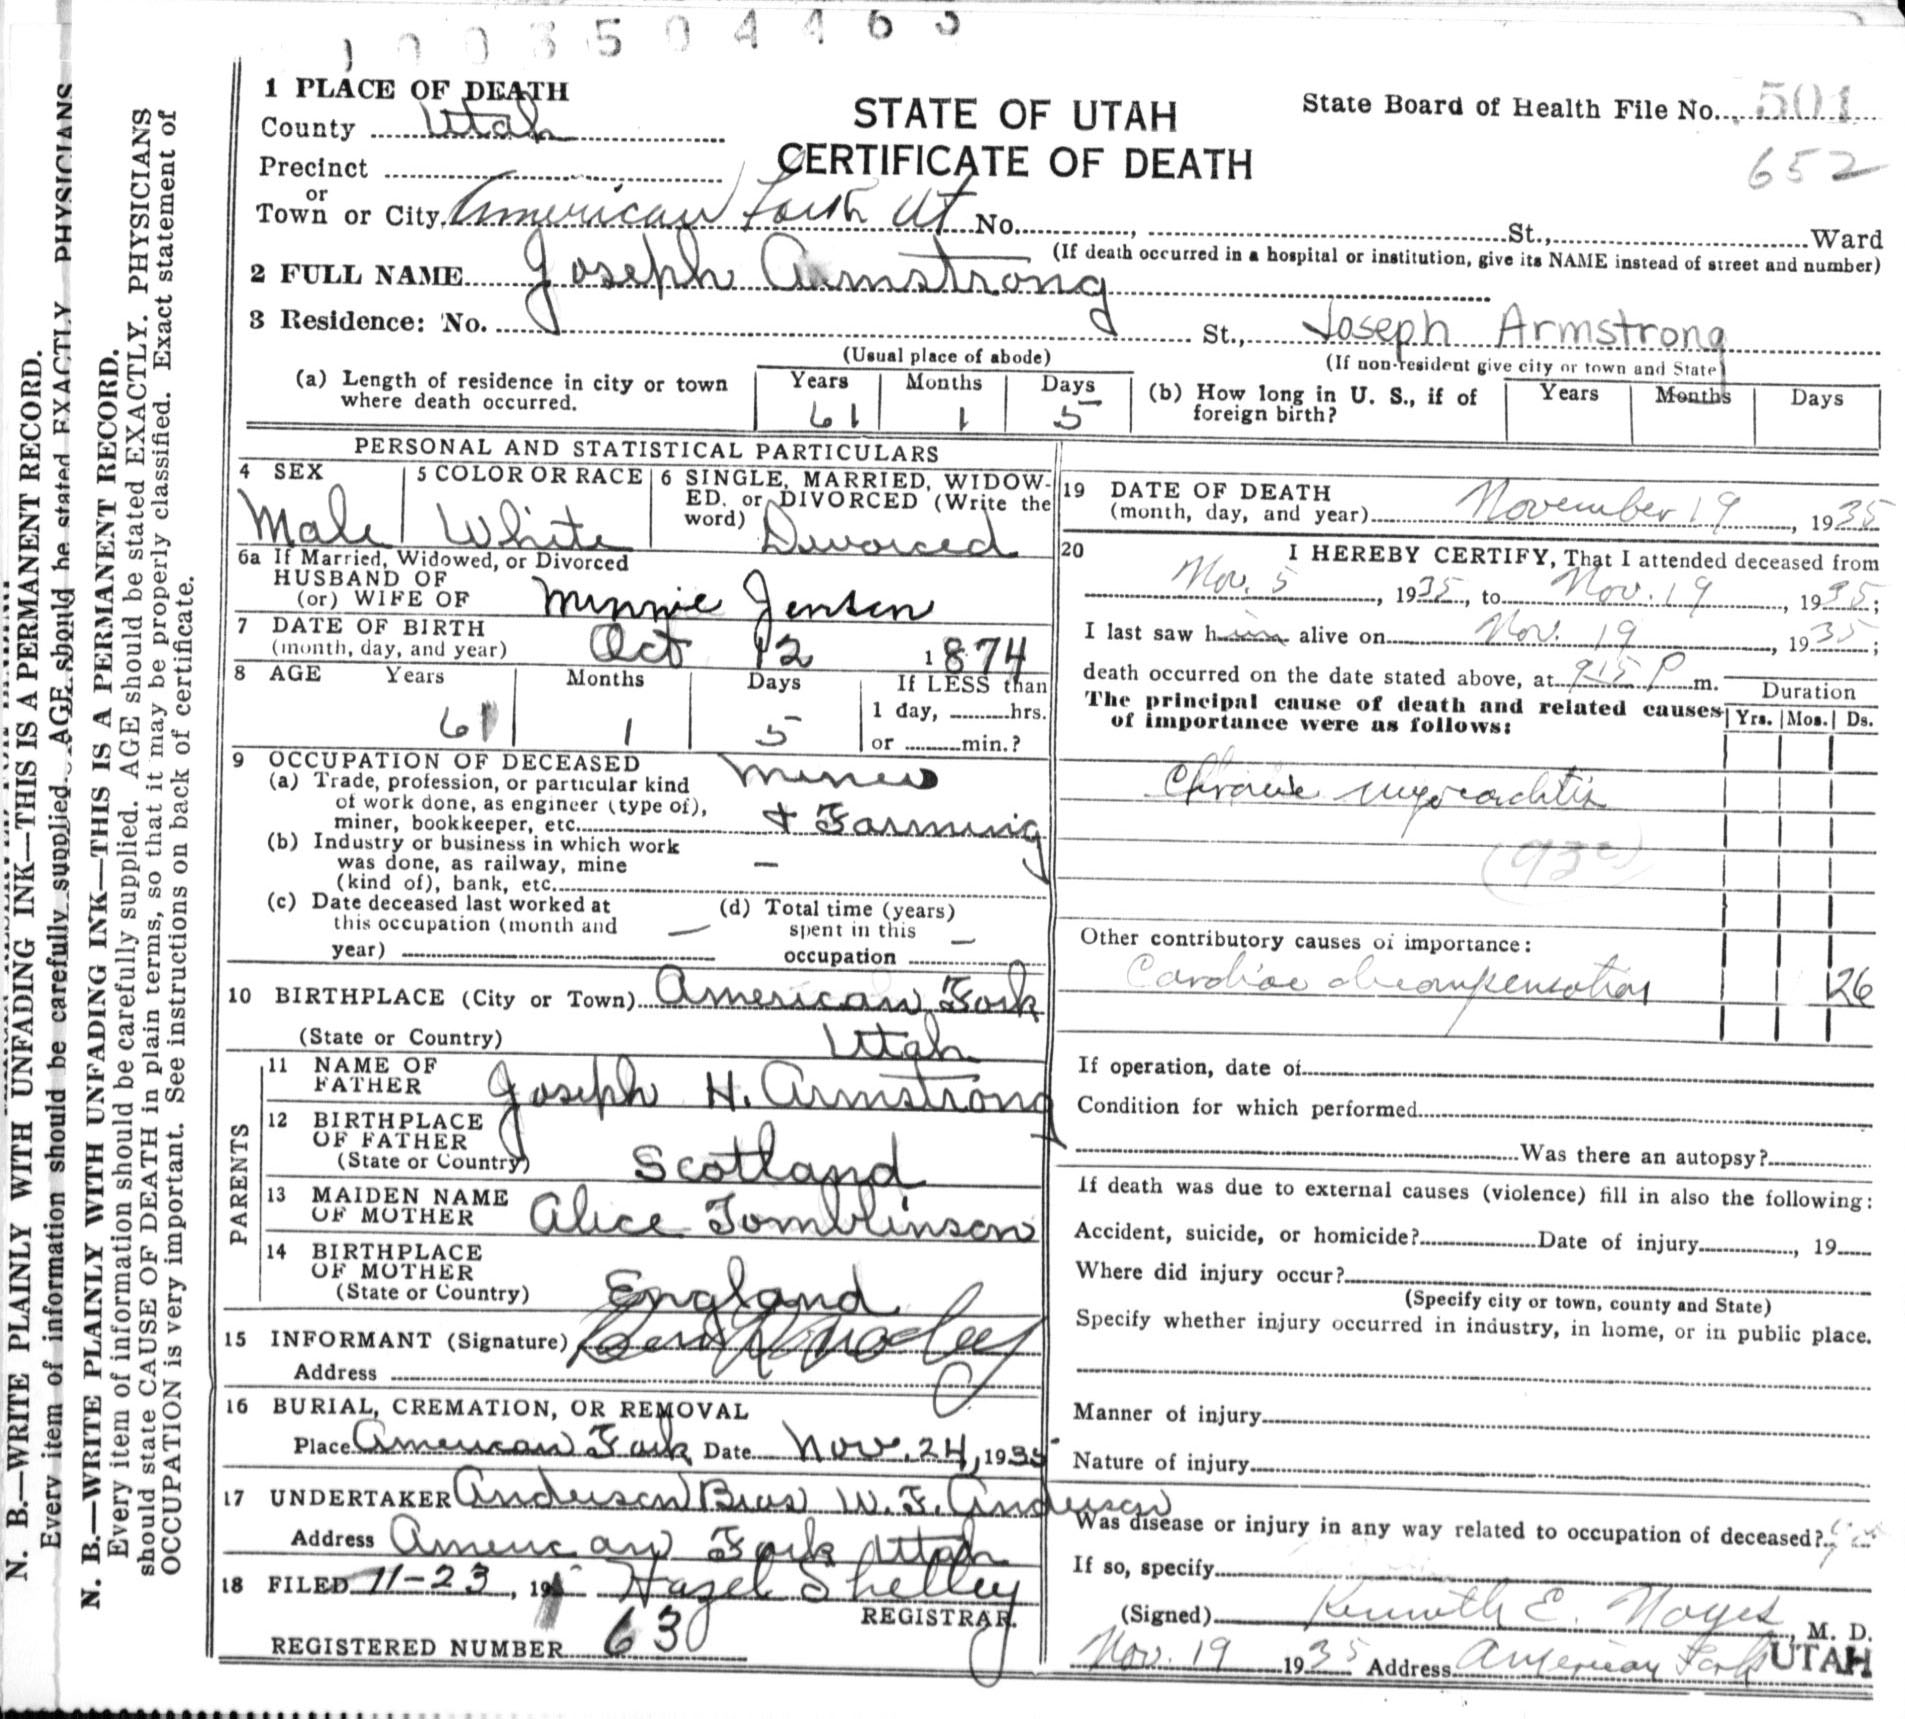 1003504463
1 PLACE OF DEATH
County Utah
STATE OF UTAH
CERTIFICATE OF DEATH
State Board of Health File No. 501
652
Precinct
or
Town or City American Fork Ut No. , St., Ward
(If death occurred in a hospital or institution, give its NAME instead of street and number)
2 FULL NAME Joseph Armstrong
3 Residence: No. St., Joseph Armstrong
(Usual place of abode) (If non-resident give city or town and State)
(a) Length of residence in city or town where death occurred. Years 61 Months 1 Days 5
(b) How long in U. S., if of foreign birth? Years Months Days
PERSONAL AND STATISTICAL PARTICULARS
4 SEX Male
5 COLOR OR RACE White
6 SINGLE, MARRIED, WIDOW-
ED, or DIVORCED (Write the
word) Divorced
6a If Married, Widowed, or Divorced
HUSBAND OF
(or) WIFE OF Minnie Jensen
7 DATE OF BIRTH
(month, day, and year) Oct 12 1874
8 AGE Years 61 Months 1 Days 5 If LESS than
1 day, hrs.
or min.?
9 OCCUPATION OF DECEASED
(a) Trade, profession, or particular kind
of work done, as engineer (type of),
miner, bookkeeper, etc. Miner
& Farming
(b) Industry or business in which work
was done, as railway, mine
(kind of), bank, etc. —
(c) Date deceased last worked at
this occupation (month and
year) —
(d) Total time (years)
spent in this
occupation —
10 BIRTHPLACE (City or Town) American Fork
(State or Country) Utah
PARENTS
11 NAME OF
FATHER Joseph H. Armstrong
12 BIRTHPLACE
OF FATHER
(State or Country) Scotland
13 MAIDEN NAME
OF MOTHER Alice Tomblinson
14 BIRTHPLACE
OF MOTHER
(State or Country) England
15 INFORMANT (Signature)
Address
16 BURIAL, CREMATION, OR REMOVAL
Place American Fork Date Nov. 24, 1935
17 UNDERTAKER Anderson Bros W. F. Anderson
Address American Fork Utah
18 FILED 11-23, 19 Hazel Shelley
REGISTRAR.
REGISTERED NUMBER 63
19 DATE OF DEATH
(month, day, and year) November 19, 1935
20 I HEREBY CERTIFY, That I attended deceased from
Nov. 5, 1935, to Nov. 19, 1935;
I last saw him alive on Nov. 19, 1935;
death occurred on the date stated above, at 915 P m.
Duration
The principal cause of death and related causes
of importance were as follows:
Yrs. Mos. Ds.
Chronic myocarditis
Other contributory causes of importance:
Cardiac decompensation 26
If operation, date of
Condition for which performed
Was there an autopsy?
If death was due to external causes (violence) fill in also the following:
Accident, suicide, or homicide? Date of injury , 19
Where did injury occur?
(Specify city or town, county and State)
Specify whether injury occurred in industry, in home, or in public place.
Manner of injury
Nature of injury
Was disease or injury in any way related to occupation of deceased?
If so, specify
(Signed) Kenneth E. Noyes, M. D.
Nov. 19 1935 Address American Fork UTAH
N. B.—WRITE PLAINLY WITH UNFADING INK—THIS IS A PERMANENT RECORD.
Every item of information should be carefully supplied. AGE should be stated EXACTLY. PHYSICIANS
N. B.—WRITE PLAINLY WITH UNFADING INK—THIS IS A PERMANENT RECORD.
Every item of information should be carefully supplied. AGE should be stated EXACTLY. PHYSICIANS
should state CAUSE OF DEATH in plain terms, so that it may be properly classified. Exact statement of
OCCUPATION is very important. See instructions on back of certificate.